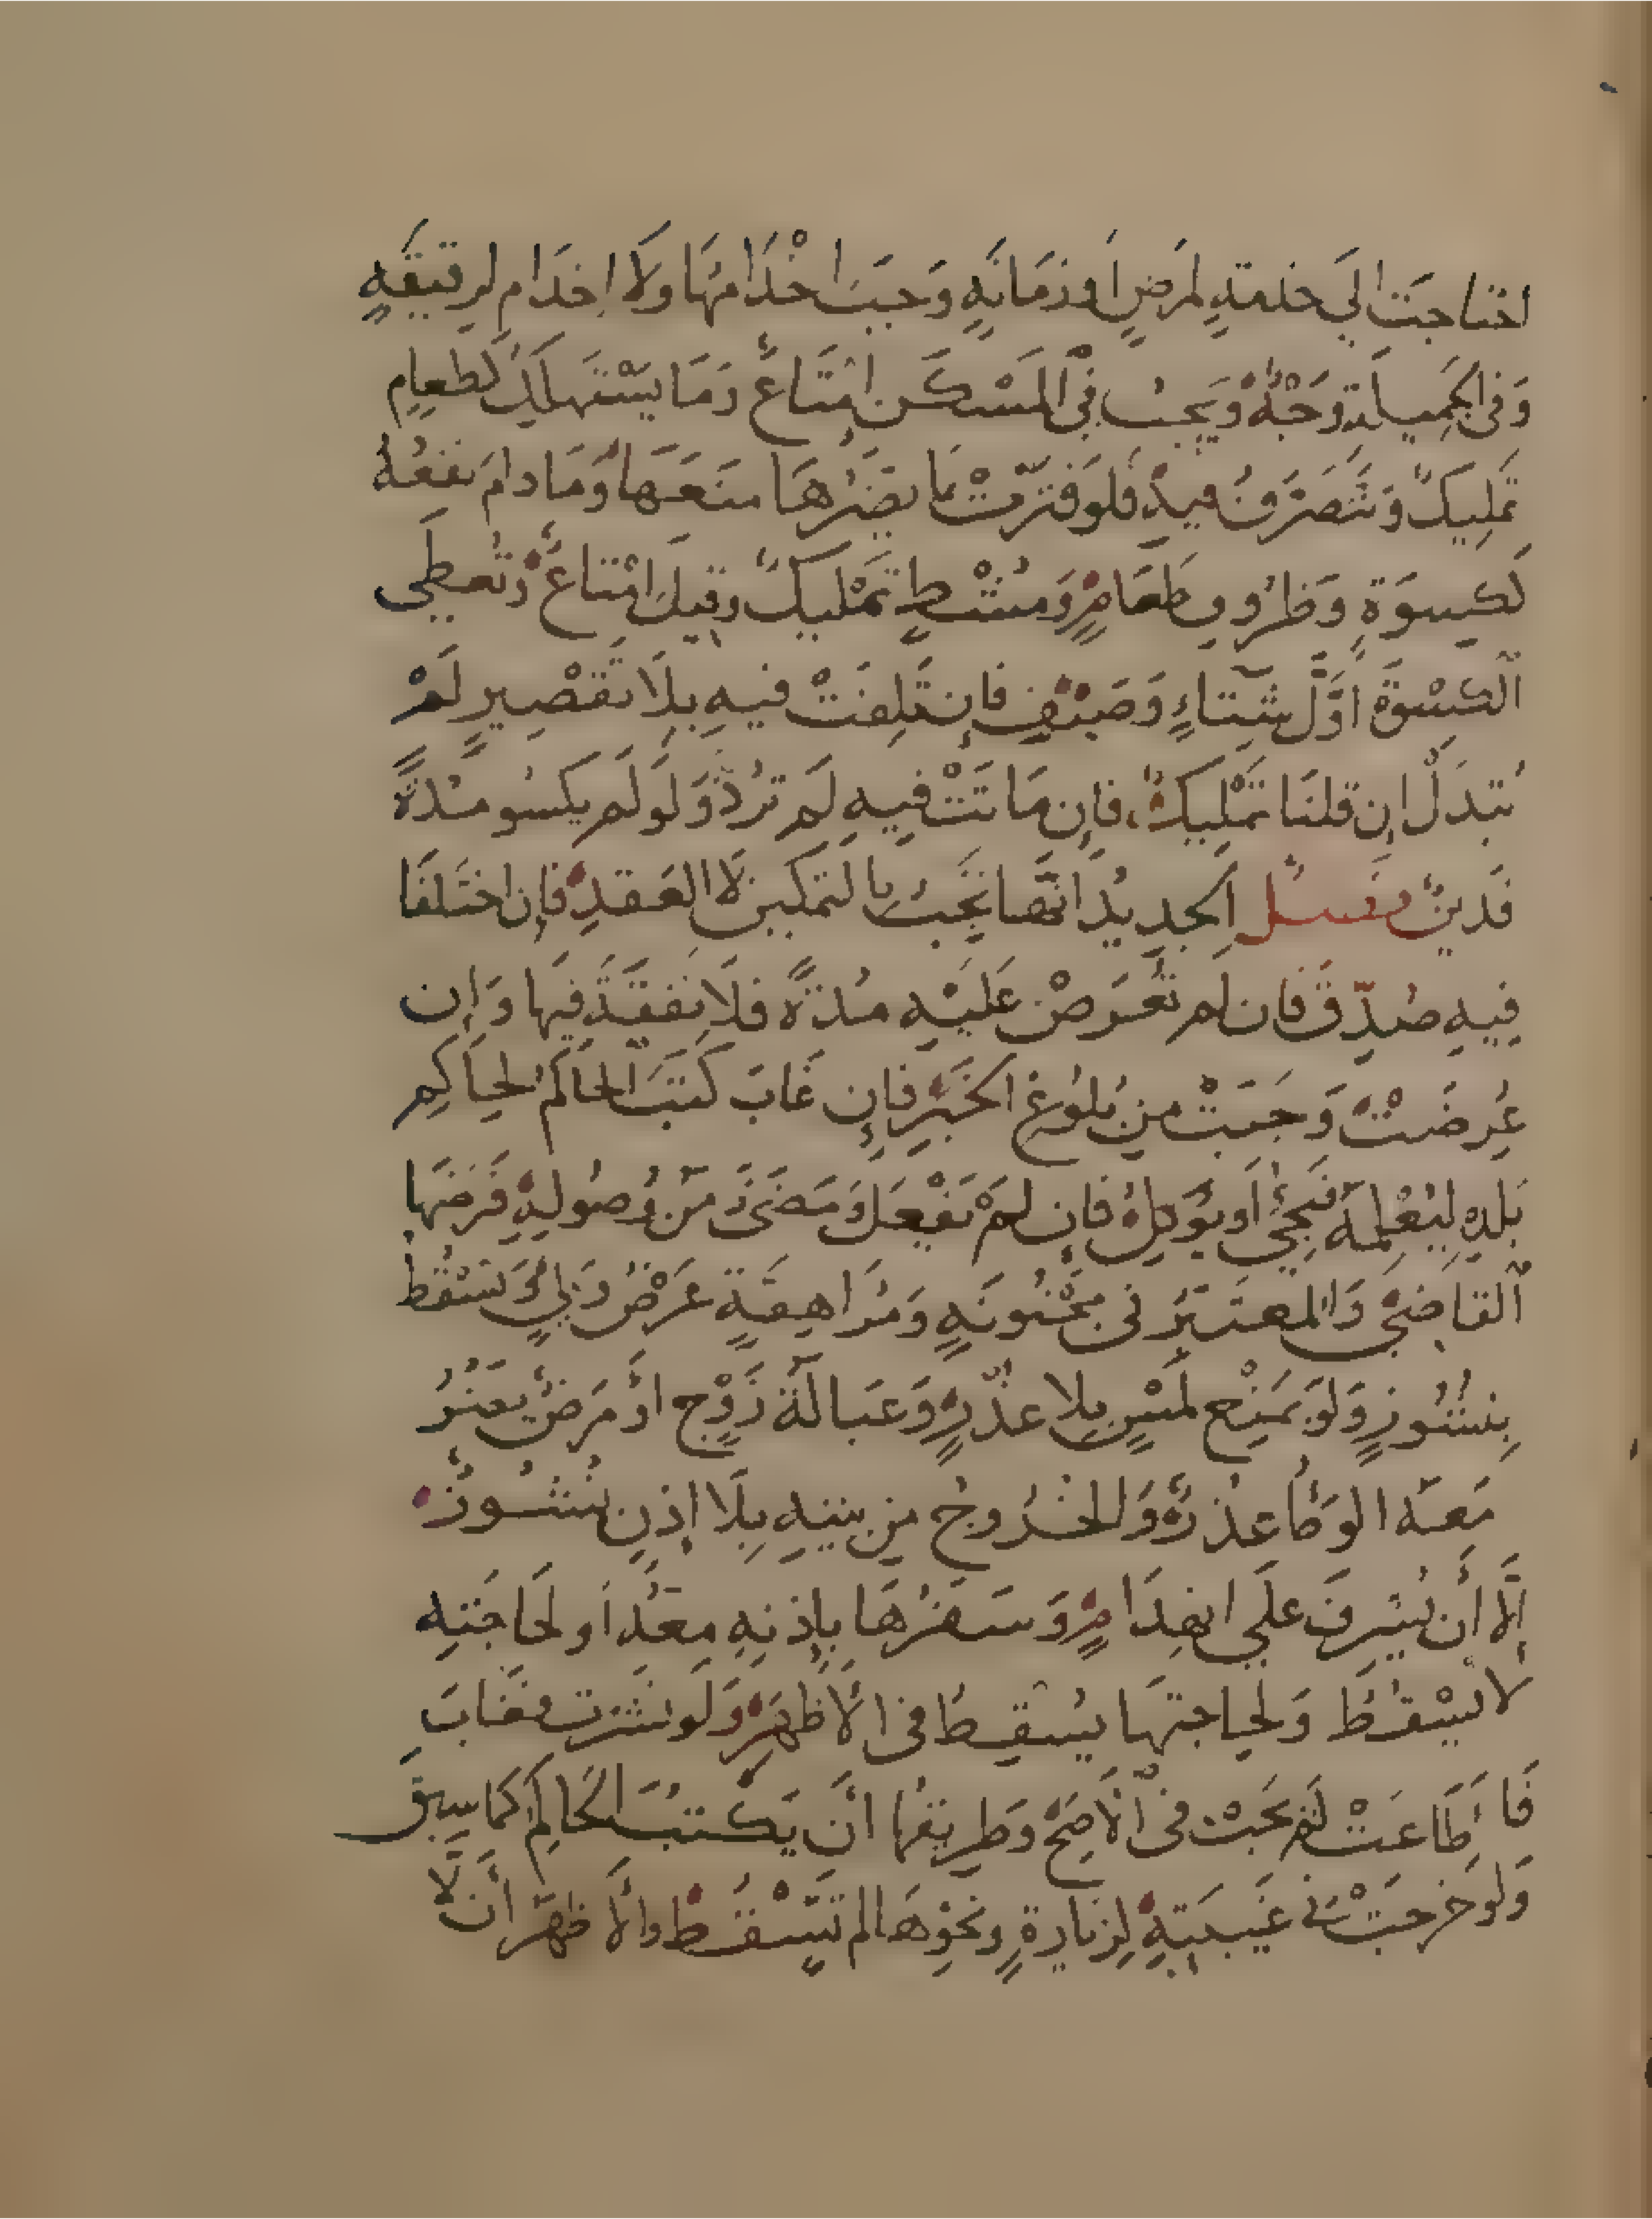 احتاجت إلى خدمة لمرض أو زمانة وجب إخدامها ولا إخدام لرقيقة
وفي الجميلة وجه ويجب في المسكن امتاع وما يستهلك كطعام
تمليك وتتصرف فيه فلو قترت بما يضرها منعها وما دام نفعه
ككسوة وظروف طعام ومشط تمليك وقيل امتاع وتعطى
الكسوة أول شتاء وصيف فإن تلفت فيه بلا تقصير لم
تبدل إن قلنا تمليك فإن ماتت فيه لم ترد ولو لم يكسو مدة
فدين فصل الجديد أنها تجب بالتمكين لا العقد فإن اختلفا
فيه صدق فإن لم تعرض عليه مدة فلا نفقة فيها وإن
عرضت وجبت من بلوغ الخبر فإن غاب كتب الحاكم لحاكم
بلده ليعلمه فيجئ أو يوكل فإن لم يفعل ومضى زمن وصوله فرضها
القاضي والمعتبر في مجنونة ومراهقة عرض ولي وتسقط
بنشوز ولو بمنع لمس بلا عذر وعبالة زوج أو مرض يضر
معه الوطأ عذر والخروج من بيته بلا إذن نشوز
إلا أن يشرف على انهدام وسفرها بإذنه معه أو لحاجته
لا يسقط ولحاجتها يسقط في الأظهر ولو نشزت فغاب
فأطاعت لم تجب في الأصح وطريقها أن يكتب الحاكم كما سبق
ولو خرجت في غيبته لزيارة ونحوها لم تسقط والأظهر أن لا